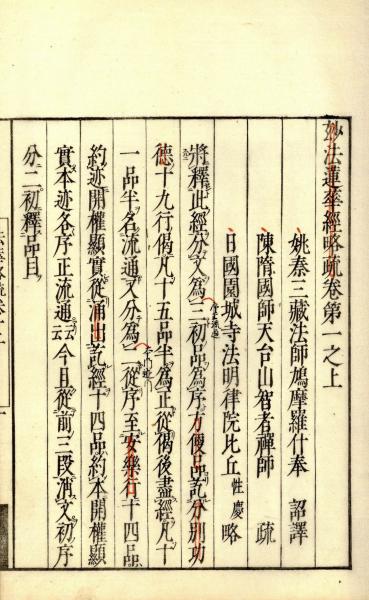 妙法蓮華經略疏卷第一之上
姚秦三藏法師鳩摩羅什奉　詔譯
陳隋國師天台山智者禪師　疏
日國園城寺法明律院比丘性慶略
將釋此經分文為三初品為序方便品訖分別功
德十九行偈凡十五品半為正從偈後盡經凡十
一品半名流通又分為二從序至安樂行十四品
約迹開權顯實從涌出訖經十四品約本開權顯
實本迹各序正流通云云今且從前三段消文初序
分二初釋品目